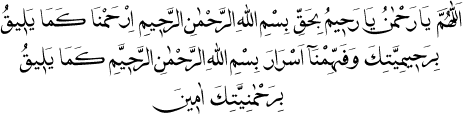 اَللّٰهُمَّ يَا رَحْمٰنُ يَا رَحِيمُ بِحَقِّ بِسْمِ اللهِ الرَّحْمٰنِ الرَّحِيمِ اِرْحَمْنَا كَمَا يَلِيقُ
بِرَحِيمِيَّتِكَ وَفَهِّمْنَٓا اَسْرَارَ بِسْمِ اللهِ الرَّحْمٰنِ الرَّحِيمِ كَمَا يَلِيقُ
بِرَحْمٰنِيَّتِكَ اٰمِينَ